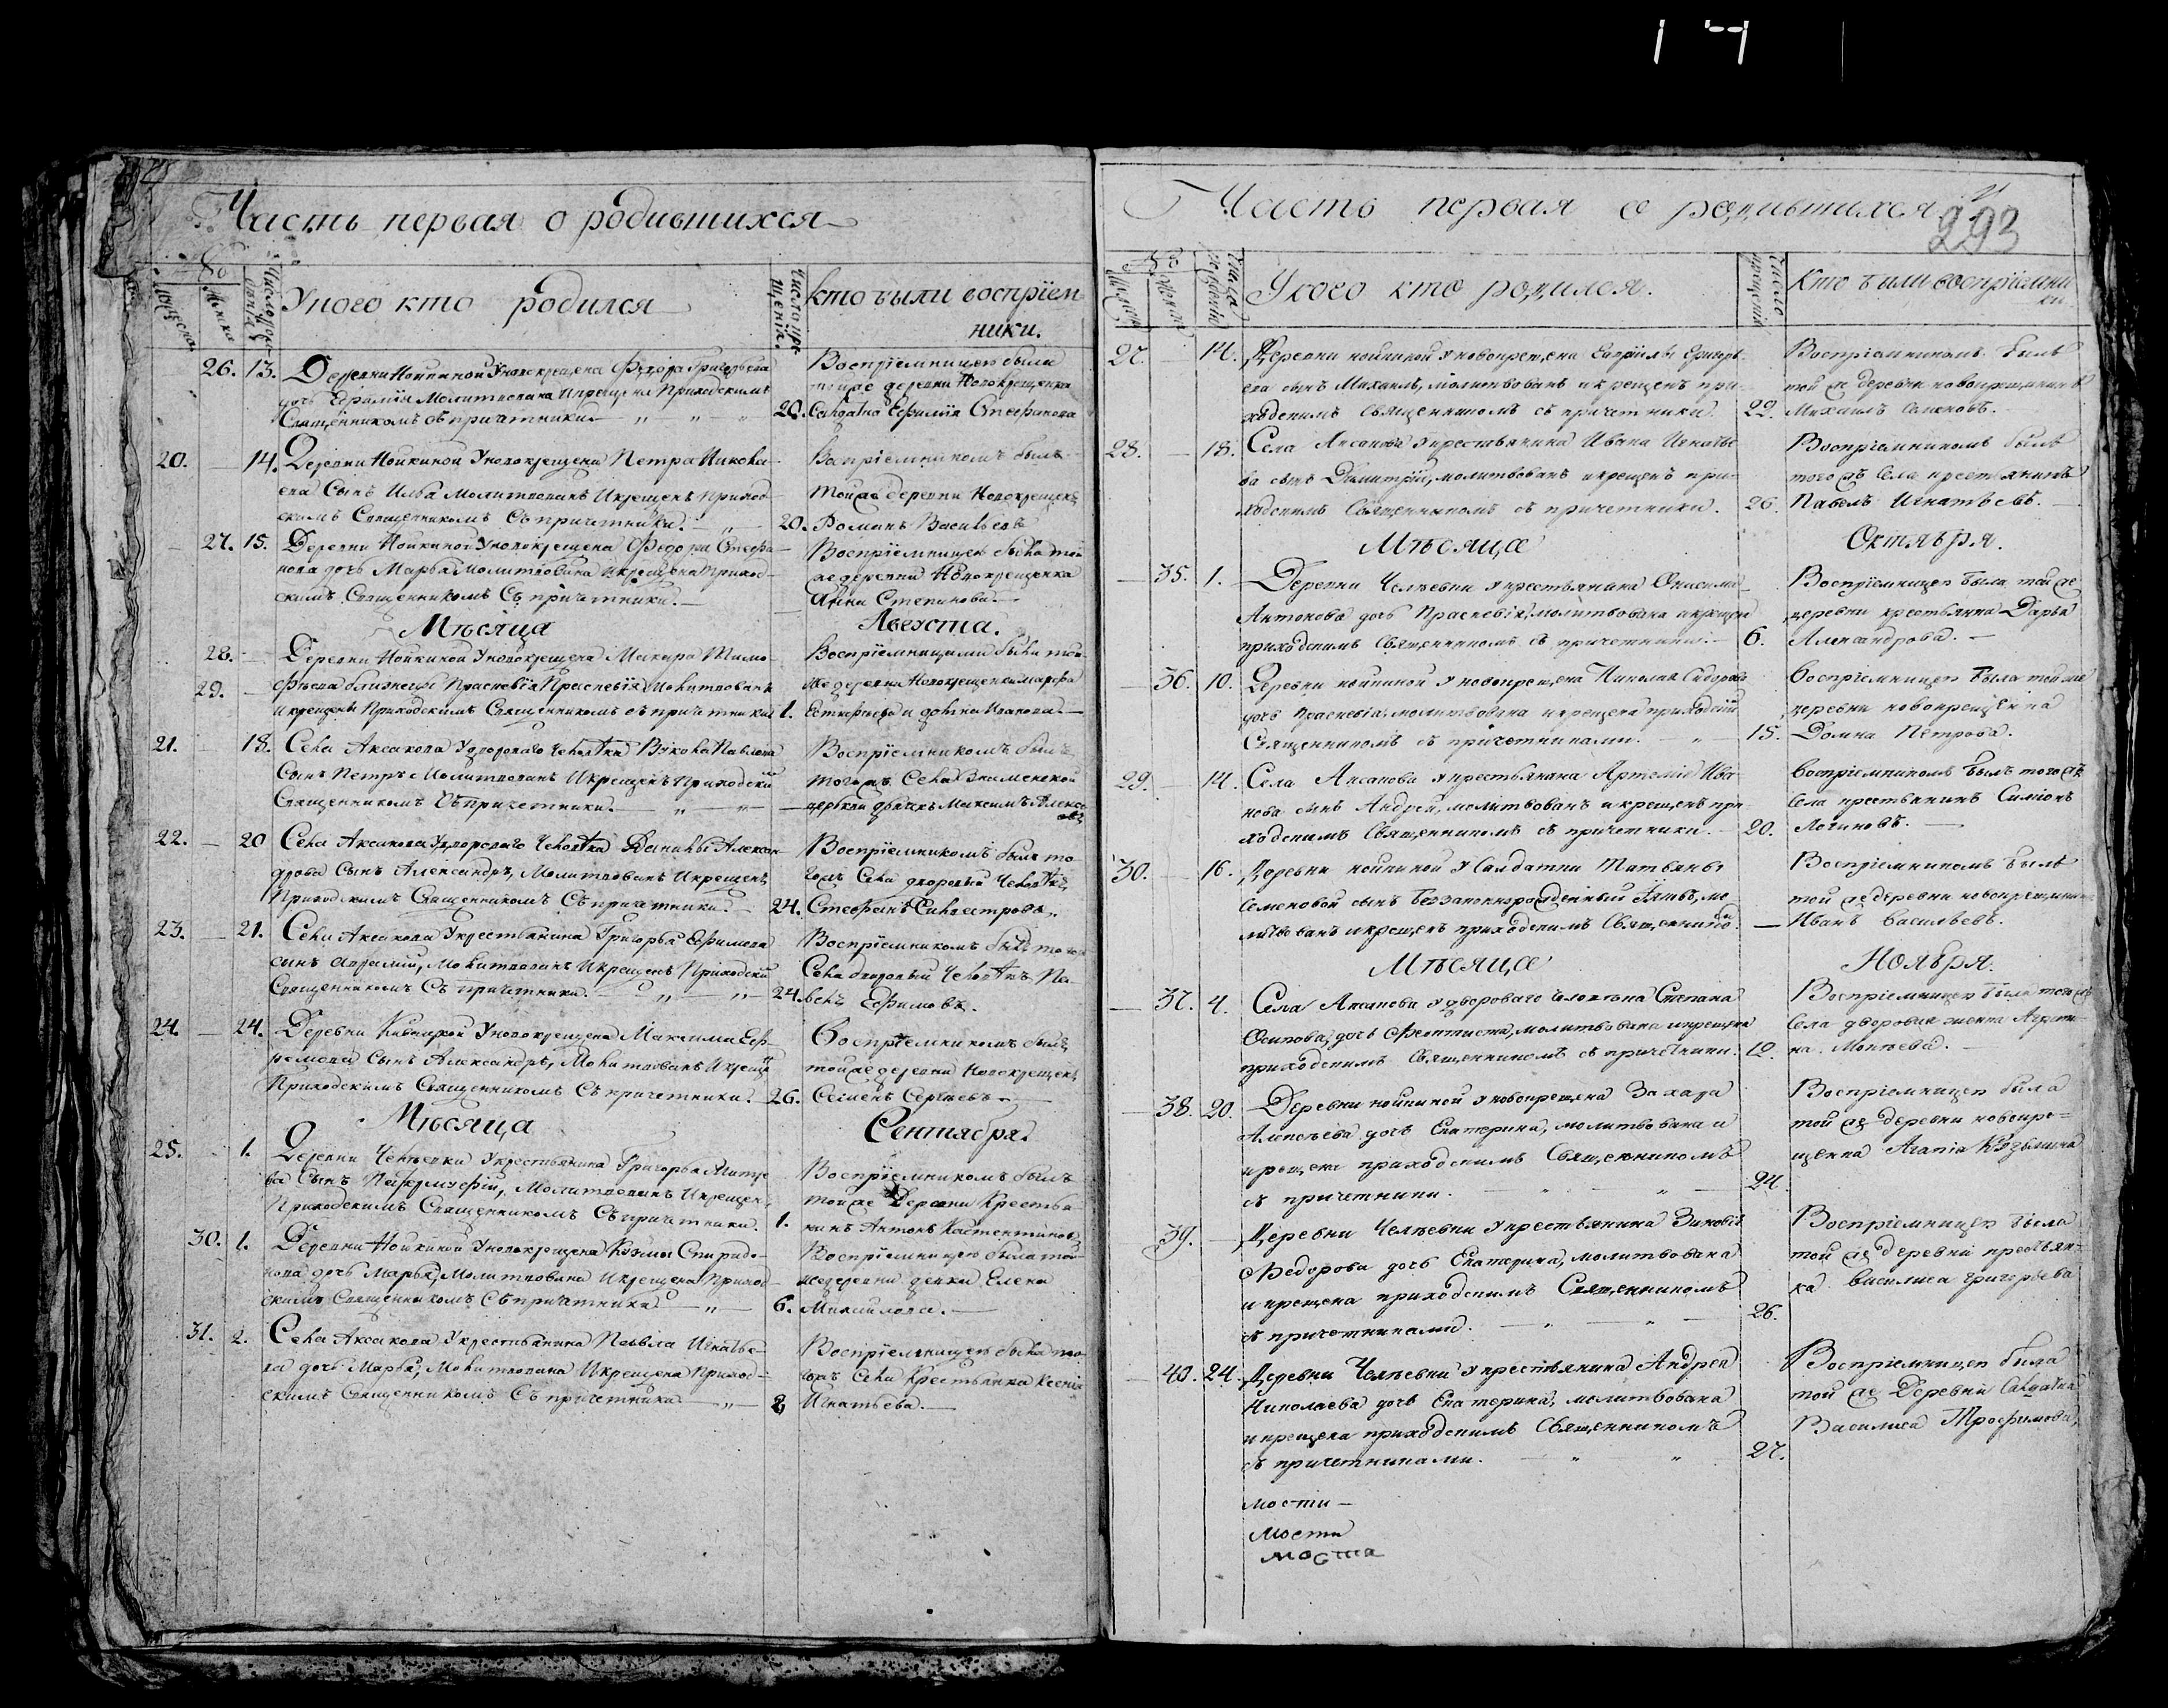 Часть первая о родившихся
Число рожденiя
Уково кто родился
Число кре-
щенiя.
кто были воспрiем
ники.
26. 13. Деревни Нойкиной Уновокрещена Федора Григорьева
дочь Ефимiя Молитвована Икрещена Приходскимъ
Священникомъ съ причетники 20.
Воспрiемницею была
тойже деревни Новокрещенка
Салдатка Ефимiя Стефанова
20. 14. Деревни Нойкиной Уновокрещена Петра Никола-
ева Сынъ Илья Молитвованъ Икрещенъ Приход-
скимъ Священникомъ Съ причетники. 20.
Воспрiемникомъ былъ
тойже деревни Новокрещенъ
Романъ Васильевъ
27. 15. Деревни Нойкиной Уновокрещена Федора Стефа-
нова дочь Марья Молитвована Икрещена Приход-
скимъ Священникомъ Съ причетники.
Воспрiемницею была той
же деревни Новокрещенка
Анна Степанова.
Мѣсяца Августа.
28. Деревни Нойкиной Уновокрещена Макара Тимо-
29. фѣева близнецы Прасковiя Прасковiя Молитвованы
Икрещены Приходскимъ Священникомъ съ причетники 1.
Воспрiемницами были той
же деревни Новокрещенки марфа
и Иванова.
21. 18. Села Аксакова Удвороваго человѣка Вукола Павлова
Сынъ Петръ Молитвованъ Икрещенъ Приходски
Священникомъ Съ причетники.
Воспрiемникомъ былъ
тогожъ Села Знаменской
церкви дьячкъ Максимъ Алексѣ
евъ
22. 20 Села Аксакова Удвороваго Человѣка Данилы Алексан
дрова Сынъ Александръ, Молитвованъ Икрещенъ
Приходскимъ Священникомъ Съ причетники. 24.
Воспрiемникомъ былъ то-
гожъ Села дворовый Человѣкъ
Стефанъ Силвестровъ.
23. 21. Села Аксакова Укрестьянина Григорья Ефимова
сынъ Молитвованъ Икрещенъ Приходски
Священникомъ Съ причетники. 24.
Воспрiемникомъ былъ тогожъ
Села дворовый Человѣкъ Па-
велъ Ефимовъ.
24. 24. Деревни Уновокрещена Максима Еф-
ремова Сынъ Александръ, Молитвованъ Икрещенъ
Приходскимъ Священникомъ Съ причетники. 26.
Воспрiемникомъ былъ
тойже деревни Новокрещенъ
Семенъ Сергѣевъ.
Мѣсяца Сентября.
25. 1. Деревни Челѣевки Укрестьянина Григорья
ва Сынъ Молитвованъ Икрещенъ
Приходскимъ Священникомъ Съ причетники. 1.
Воспрiемникомъ былъ
тойже Деревни Крестья-
нинъ Антонъ Костентиновъ
30. 1. Деревни Нойкиной Уновокрещена Кузмы Спиридо-
нова дочь Марья, Молитвована Икрещена Приход-
скимъ Священникомъ Съ причетники 6.
Воспрiемницею была той
же деревни девка Елена
Михайлова.
31. 2. Села Аксакова Укрестьянина Павла Игнатье-
ва дочь Марья, Молитвована Икрещена Приход-
скимъ Священникомъ Съ причетники 8
Воспрiемницею была то-
гожъ Села Крестьянка Ксенiя
Игнатьева.
Часть первая о родившихся
293
Укого кто родился.
Число крещенiй
Кто были воспрiемни
ки.
27. 14. Деревни нойкиной у новокрещена Гаврiилы Григорь
ева сынъ Михаилъ, молитвованъ икрещенъ при-
ходскимъ Священникомъ съ причетники. 22.
Воспрiемникомъ былъ
той же деревни новокрещенинъ
Михаилъ Семеновъ.
28. 18. Села Аксакова укрестьянина Ивана Игнатье
ва сынъ Димитрiй, молитвованъ икрещенъ при-
ходскимъ Священникомъ съ причетники. 26.
Воспрiемникомъ былъ
того жъ Села крестьянинъ
Павелъ Игнатьевъ.
Мѣсяца Октября.
35. 1. Деревни Челѣевки укрестьянина Онисима
Антонова дочь Прасковiя, молитвована икрещен
приходскимъ Священникомъ съ причетники. 6.
Воспрiемницею была той же
деревни крестьянка Дарья
Александрова.
36. 10. Деревни нойкиной у новокрещена Николая Сидорова
дочь Прасковiя, молитвована икрещена приходскiй
Священникомъ съ причетниками. 15.
воспрiемницею была той же
деревни новокрещенка
Домна Петрова.
29. 14. Села Аксакова укрестьянина Артемiя Ива
нова сынъ Андрей, молитвованъ икрещенъ при
ходскимъ Священникомъ съ причетники. 20.
воспрiемникомъ былъ того жъ
села крестьянинъ Симiонъ
Логиновъ.
30. 16. Деревни нойкиной у Салдатки Татьяны
Семеновой сынъ беззаконнорожденный мо
литвованъ икрещенъ приходскимъ Священникомъ.
Воспрiемникомъ былъ
той же деревни новокрещенинъ
Иванъ Васильевъ.
Мѣсяца Ноября.
37. 4. Села Аксакова удвороваго человѣка Степана
Осипова, дочь Феоктиста, молитвована икрещена
приходскимъ Священникомъ съ причетники. 12.
Воспрiемницею была того жъ
села дворовая женка Аграфе-
на Мокѣева.
38. 20. Деревни нойкиной у новокрещена Захара
Алексѣева дочь Екатерина, молитвована и
крещена приходскимъ Священникомъ
съ причетники. 24.
Воспрiемницею была
той же деревни новокре-
щенка Агапiя Козьмина
39. Деревни Челѣевки укрестьянина Зиновiя
Ѳедорова дочь Екатерина, молитвована
и крещена приходскимъ Священникомъ
съ причетниками. 26.
Воспрiемницею была
той же деревни крестьян-
ка василиса григорьева
40. 24. Деревни Челѣевки укрестьянина Андрея
Николаева дочь Екатерина, молитвована
и крещена приходскимъ Священникомъ
съ причетниками. 27.
Воспрiемницею была
той же Деревни Салдатка
Василиса Трофимова.
мости
мости
моста